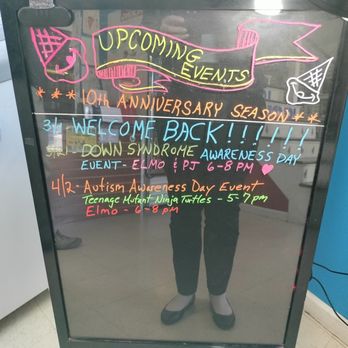 UPCOMING
EVENTS
*** 10th ANNIVERSARY SEASON **
3/1 - WELCOME BACK!!!!!!
3/21 - DOWN SYNDROME AWARENESS DAY
EVENT - ELMO & PJ 6-8 PM
4/2 - Autism Awareness Day Event
Teenage Mutant Ninja Turtles - 5-7 pm
Elmo - 6-8 pm